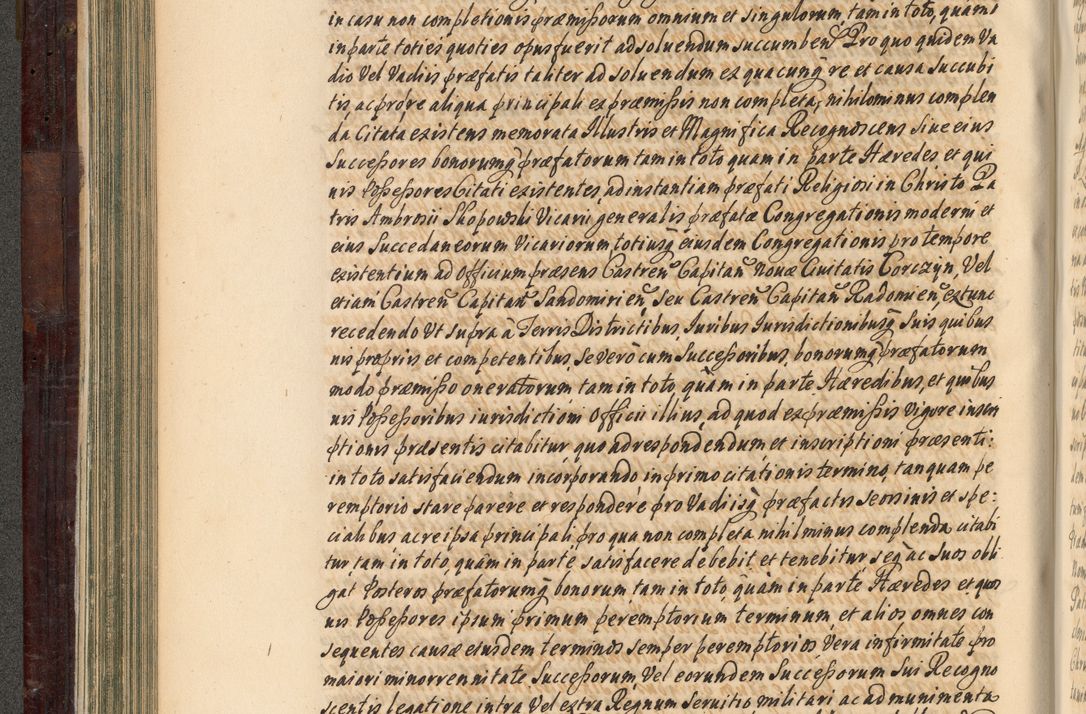 in casu non completionis præmissorum omnium et singulorum, tam in toto, quam
in parte toties quoties opus fuerit ad soluendum succumben̄ Pro quo quidem Va
dio Vel Vadiis præfatis taliter ad soluendum ex quacunq̄ re et causa succubi
tis ac pro re aliqua principali ex præmissis non completa, nihilominus complen
da Citata existens memorata Illustris et Magnifica Recognoscens siue eius
Successores bonorumq̄ præfatorum tam in toto quam in parte Hæredes et qui
uis Possessores Citati existentes, ad instantiam præfati Religiosi in Christo Pa
tris Ambrosii Skopowski Vicarii generalis præfatæ Congregationis moderni et
eius Succedaneorum Vicariorum totiusq̄ eiusdem Congregationis pro tempore
existentium ad Officium præsens Castren̄ Capitan̄ Nouæ Ciuitatis Corczyn, Vel
etiam Castren̄ Capitan̄ Sandomirien̄, seu Castren̄ Capitan̄ Radomien̄, ex tunc
recedendo Vt supra à Terris Districtibus, Iuribus Iurisdictionibusq̄ suis, quibus
uis propriis et competentibus, se verò cum Successoribus, bonorumq̄ præfatorum
modo præmisso oneratorum tam in toto, quàm in parte Hæredibus, et quibus
uis Possessoribus iurisdictioni Officii illius, ad quod ex præmissis Vigore inscri
ptionis præsentis citabitur quo ad respondendum et inscriptioni præsenti:
in toto satisfaciendum incorporando in primo citationis termino, tanquam pe
remptorio stare parere et respondere pro Vadiisq̄ præfactis seorsiuis et spe:
cialibus ac re ipsa principali, pro qua non completa nihilminus complenda citabi
tur, tam in toto, quàm in parte satisfacere debebit et tenebitur, seq̄ ac suos obli
gat Posteros præfatorumq̄ bonorum tam in toto, quàm in parte Hæredes et quos
uis Possessores ipsum primum peremptorium terminum et alios omnes con
sequentes causæ eiusdem terminos semper peremptorios Vera infirmitate pro
maiori minorrennitate Successorum, Vel eorundem Successorum sui Recogno
scentis legatione intra Vel extra Regnum seruitio militari ac ad munimenta